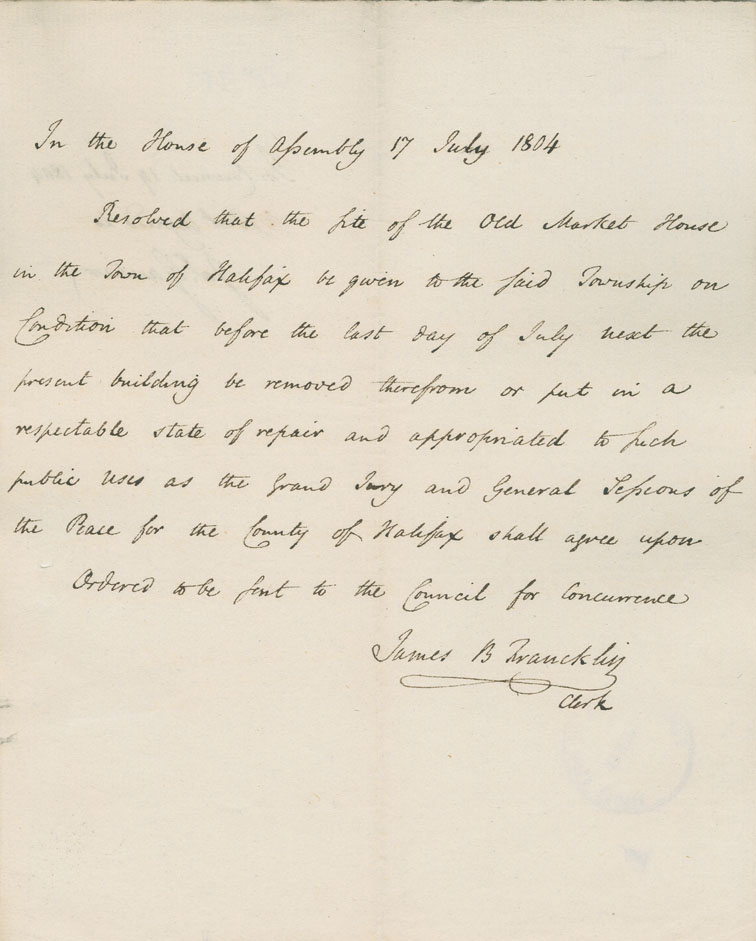 In the House of Assembly 17 July 1804
Resolved that the site of the Old Market House
in the Town of Halifax be given to the said Township on
Condition that before the last day of July next the
present building be removed therefrom or put in a
respectable state of repair and appropriated to such
public uses as the Grand Jury and General Sessions of
the Peace for the County of Halifax shall agree upon
Ordered to be sent to the Council for Concurrence
James B Francklin
Clerk